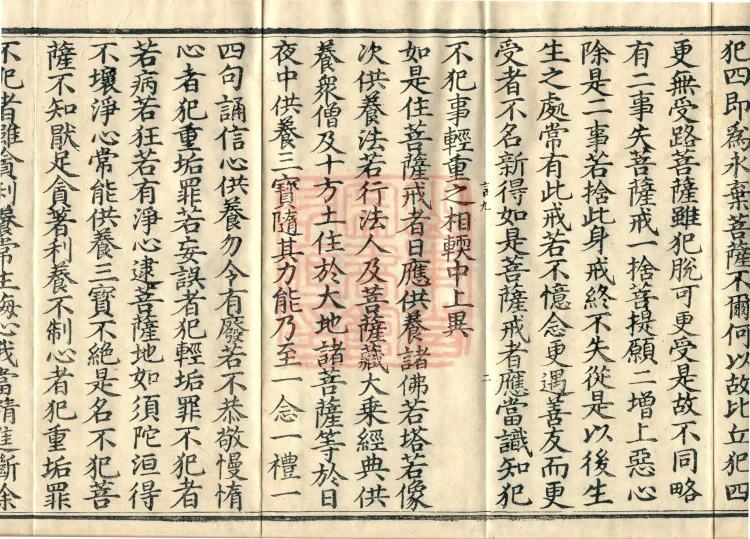 犯四即為永棄菩薩不爾何以故比丘犯四
更無受路菩薩雖犯脫可更受是故不同略
有二事失菩薩戒一捨菩提願二增上惡心
除是二事若捨此身戒終不失從是以後生
生之處常有此戒若不憶念更遇善友而更
受者不名新得如是菩薩戒者應當識知犯
言九
二
不犯事輕重之相輭中上異
如是住菩薩戒者日應供養諸佛若塔若像
次供養法若行法人及菩薩藏大乘經典供
養眾僧及十方土住於大地諸菩薩等於日
夜中供養三寶隨其力能乃至一念一禮一
四句誦信心供養勿令有廢若不恭敬慢惰
心者犯重垢罪若妄誤者犯輕垢罪不犯者
若病若狂若有淨心逮菩薩地如須陀洹得
不壞淨心常能供養三寶不絕是名不犯菩
薩不知厭足貪著利養不制心者犯重垢罪
不犯者雖貪利養常生悔心我當精進斷除